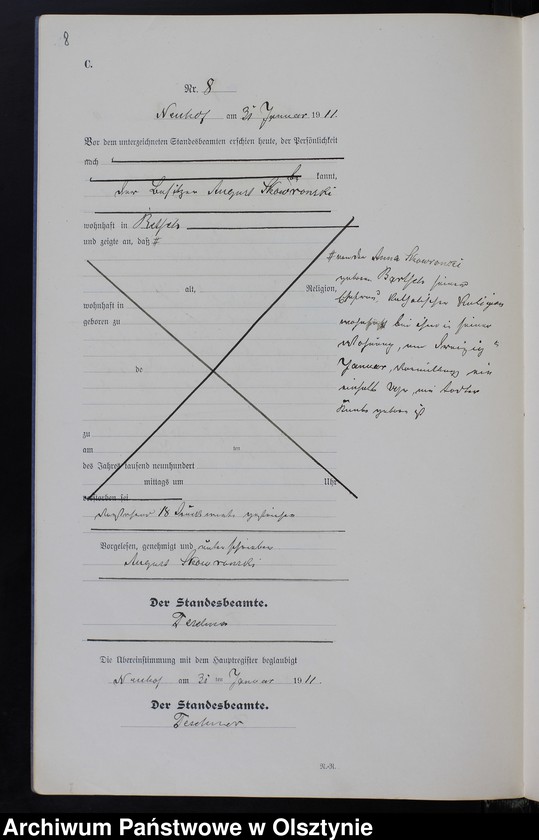 8
C.
Nr. 8
Neuhof am 31 Januar 1911.
Vor dem unterzeichneten Standesbeamten erschien heute, der Persönlichkeit
nach
be kannt,
der Besitzer August Skowronski
wohnhaft in
und zeigte an, daß #
# von der Anna Skowronski
geborene Bartsch seiner
Ehefrau katholischer Religion
wohnhaft bei ihm in seiner
Wohnung, am
Januar, Vormittags ein
einhalb Uhr, ein todtes
Kind geboren ist
alt, Religion,
wohnhaft in
geboren zu
de
zu
am ten
des Jahres tausend neunhundert
mittags um Uhr
verstorben sei
Vorstehend 18 Druckworte gestrichen
Vorgelesen, genehmigt und unterschrieben
August Skowronski
Der Standesbeamte.
Teschner
Die Übereinstimmung mit dem Hauptregister beglaubigt
Neuhof am 31 ten Januar 1911.
Der Standesbeamte.
Teschner
R.-R.
Archiwum Państwowe w Olsztynie